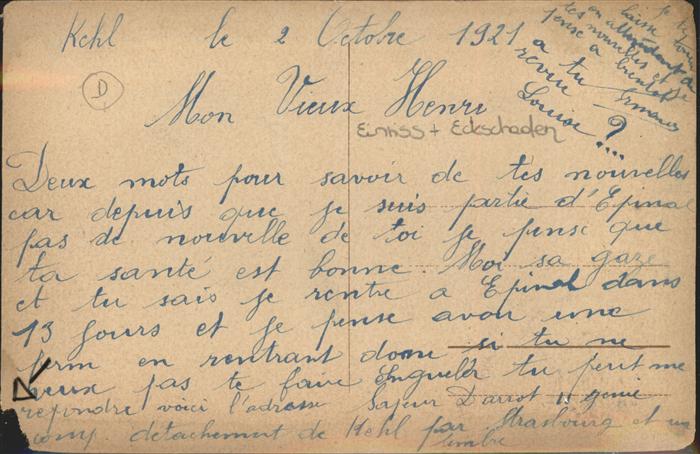 Kehl le 2 Octobre 1921
D
Mon Vieux Henri
Einriss + Eckschaden
Deux mots pour savoir de tes nouvelles
car depuis que je suis partie d'Epinal
pas de nouvelle de toi je pense que
ta santé est bonne. Moi sa gaze
et tu sais je rentre a Epinal dans
13 jours et je pense avoir une
perm en rentrant donc si tu ne
veux pas te faire Enguelér tu peut me
repondre voici l'adresse Sapeur Darrot 11 genie
comp detachement de Kehl par Strasbourg et un
timbre
je te
laisse
en attendant de
tes nouvelles et je
pense a bientot
a tu
revu
Louise ?....